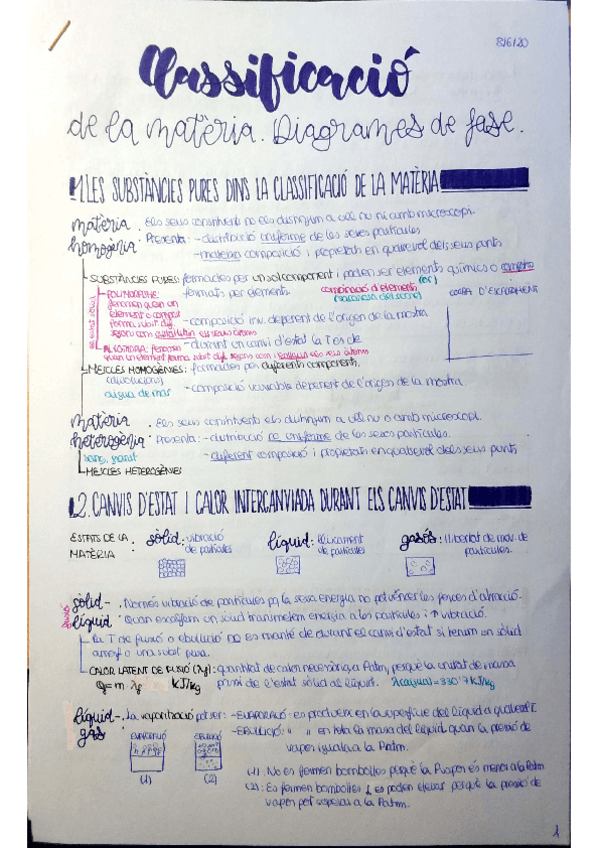 8/6/20
Classificació
de la matèria. Diagrames de fase.
1. LES SUBSTÀNCIES PURES DINS LA CLASSIFICACIÓ DE LA MATÈRIA
matèria homogènia
. Els seus constituents no els distingim a ull nu ni amb microscopi.
. Presenta: - distribució uniforme de les seves partícules
- mateixa composició i propietats en qualsevol dels seus punts
SUBSTÀNCIES PURES: formades per un sol component i poden ser elements químics o compostos
formats per elements. (or) combinació d'elements
(sacarosa del sucre)
CORBA D'ESCALFAMENT
en estat sòlid
POLIMORFISME: fenomen quan un element o compost forma subst. dif.
- composició inv. depenent de l'origen de la mostra
- durant un canvi d'estat la T es de
AL·LOTROPIA: fenomen quan un element forma subst. dif.
MESCLES HOMOGÈNIES: formades per diferents components.
(dissolucions)
aigua de mar
- composició variable depenent de l'origen de la mostra.
matèria heterogènia
. Els seus constituents els distingim a ull nu o amb microscopi.
. Presenta: - distribució no uniforme de les seves partícules.
- diferent composició i propietats en qualsevol dels seus punts
sang, granit
MESCLES HETEROGÈNIES
2. CANVIS D'ESTAT I CALOR INTERCANVIADA DURANT ELS CANVIS D'ESTAT
ESTATS DE LA MATÈRIA:
sòlid: vibració de partícules
líquid: lliscament de partícules
gasós: llibertat de mov. de partícules.
fusió
sòlid - líquid
. Només vibració de partícules pq la seva energia no pot vèncer les forces d'atracció.
. Quan escalfem un sòlid transmetem energia a les partícules i ↑ vibració.
La T de fusió o ebullició no es manté cte durant el canvi d'estat si tenim un sòlid
amorf o una subst. pura.
CALOR LATENT DE FUSIÓ (λf): quantitat de calor necessària, a Patm, perquè la unitat de massa
Q = m · λf KJ/kg
passi de l'estat sòlid al líquid. λ(aigua) = 330'7 KJ/kg
líquid - gas
. La vaporització pot ser: - EVAPORACIÓ: es produeix en la superfície del líquid a qualsevol T.
- EBULLICIÓ: " " en tota la massa del líquid quan la pressió de
vapor iguala a la Patm.
EVAPORACIÓ
EBULLICIÓ
(1)
(2)
(1): No es formen bombolles perquè la Pvapor és menor a la Patm
(2): Es formen bombolles i es poden elevar perquè la pressió de
vapor pot superar a la Patm.
1